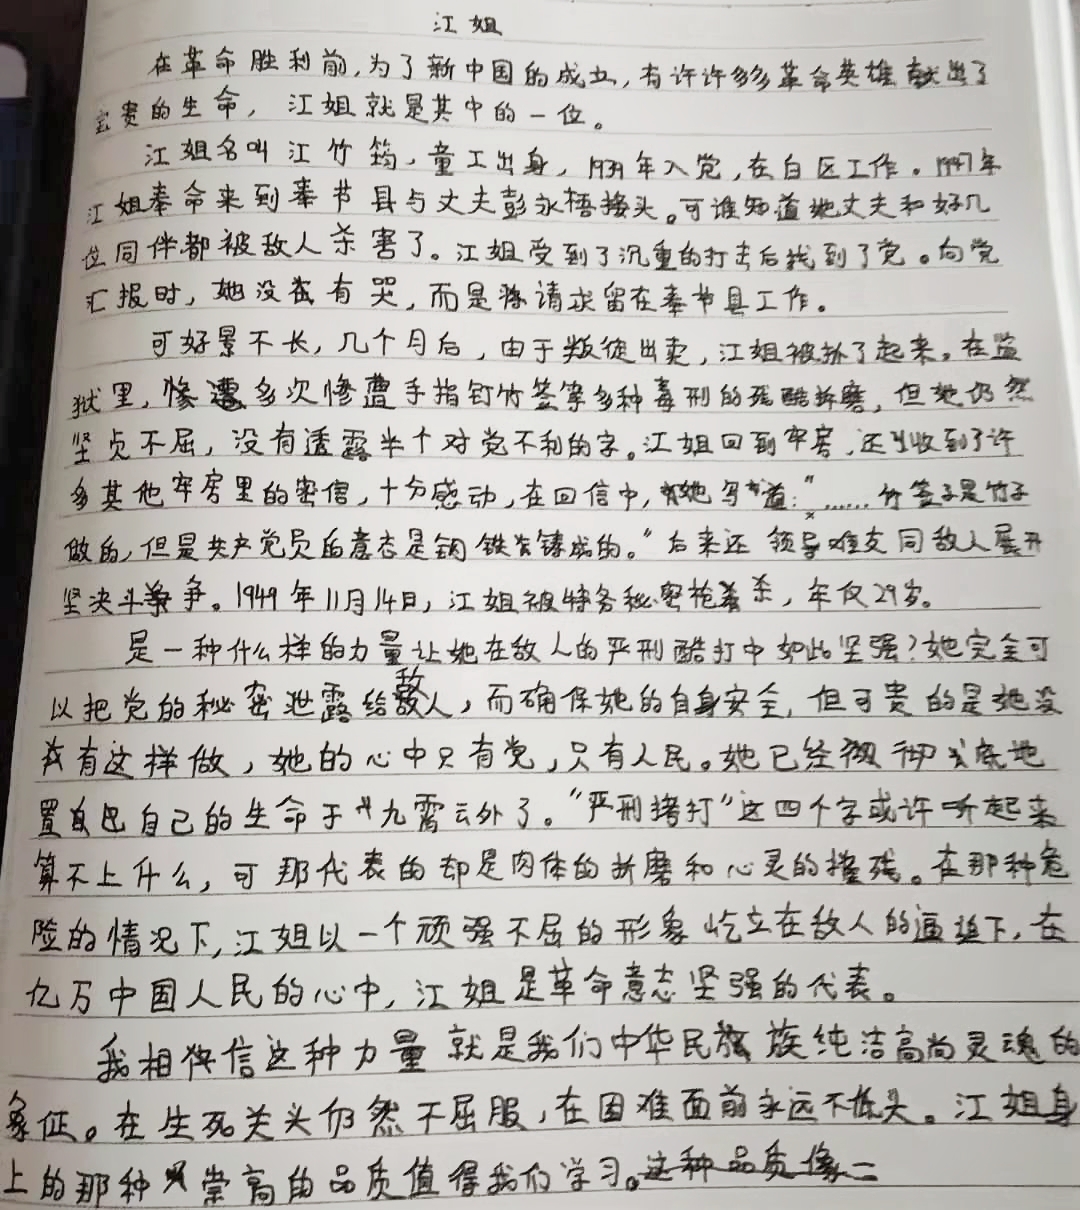 江姐
在革命胜利前,为了新中国的成立,有许许多多革命英雄献出了
宝贵的生命,江姐就是其中的一位。
江姐名叫江竹筠,童工出身,1939年入党,在白区工作。1947年
江姐奉命来到奉节县与丈夫彭永梧接头。可谁知道她丈夫和好几
位同伴都被敌人杀害了。江姐受到了沉重的打击后找到了党。向党
汇报时,她没有哭,而是请求留在奉节县工作。
可好景不长,几个月后,由于叛徒出卖,江姐被抓了起来。在监
狱里,惨遭多次惨遭手指钉竹签等多种毒刑的残酷折磨,但她仍然
坚贞不屈,没有透露半个对党不利的字。江姐回到牢房,还收到了许
多其他牢房里的密信,十分感动,在回信中,她写道:“……竹签子是竹子
做的,但是共产党员的意志是钢铁铸成的。”后来还领导难友同敌人展开
坚决斗争。1949年11月14日,江姐被特务秘密枪杀,年仅29岁。
是一种什么样的力量让她在敌人的严刑酷打中如此坚强?她完全可
以把党的秘密泄露给敌人,而确保她的自身安全,但可贵的是她没
有这样做,她的心中只有党,只有人民。她已经彻底地
置自己的生命于九霄云外了。“严刑拷打”这四个字或许听起来
算不上什么,可那代表的却是肉体的折磨和心灵的摧残。在那种危
险的情况下,江姐以一个顽强不屈的形象屹立在敌人的逼迫下,在
亿万中国人民的心中,江姐是革命意志坚强的代表。
我相信这种力量就是我们中华民族纯洁高尚灵魂的
象征。在生死关头仍然不屈服,在困难面前永远不低头。江姐身
上的那种崇高的品质值得我们学习。这种品质像一